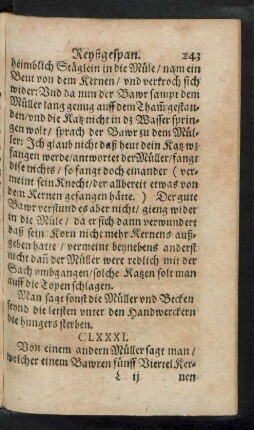 Reyßgespan. 243
heimblich Stäglein in die Müle / nam ein
Beut von dem Kernen / vnd verkroch sich
wider: Vnd da nun der Bawr sampt dem
Müller lang genug auff dem Tham̃ gestan-
den / vnd die Katz nicht in dz Wasser sprin-
gen wolt / sprach der Bawr zu dem Mül-
ler: Ich glaub nicht daß heut dein Katz wz
fangen werde / antwortet der Müller / fangt
dise nichts / so fangt doch einander (ver-
meint sein Knecht / der allbereit etwas von
dem Kernen gefangen hätte.) Der gute
Bawr verstund es aber nicht / gieng wider
in die Müle / da er sich dann verwundert
daß sein Korn nicht mehr Kernens auß-
geben hatte / vermeint beynebens anderst
nicht dañ der Müller were redlich mit der
Sach vmbgangen / solche Katzen solt man
auff die Topen schlagen.
Man sagt sonst die Müller vnd Becken
seynd die letsten vnter den Handwerckern
die hungers sterben.
CLXXXI.
Von einem andern Müller sagt man /
welcher einem Bawren fünff Viertel Ker-
L ij nen